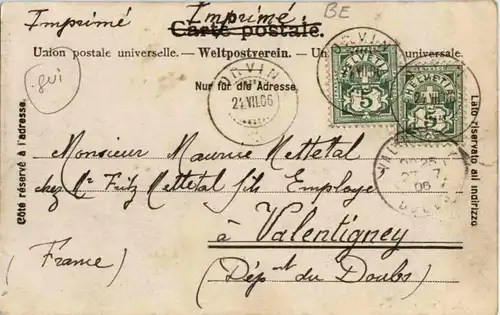 Imprimé
Imprimé
BE
Carte postale.
Union postale universelle. — Weltpostverein. — Un universale.
Nur für die Adresse
ORVIN
21.VII.06
HELVETIA
5
HELVETIA
5
Côté réservé à l'adresse.
Lato riservato all'indirizzo
Monsieur Maurice Mettetal
chez Mr Fritz Mettetal fils Employé
à Valentigney
(France)
(Dépnt du Doubs)